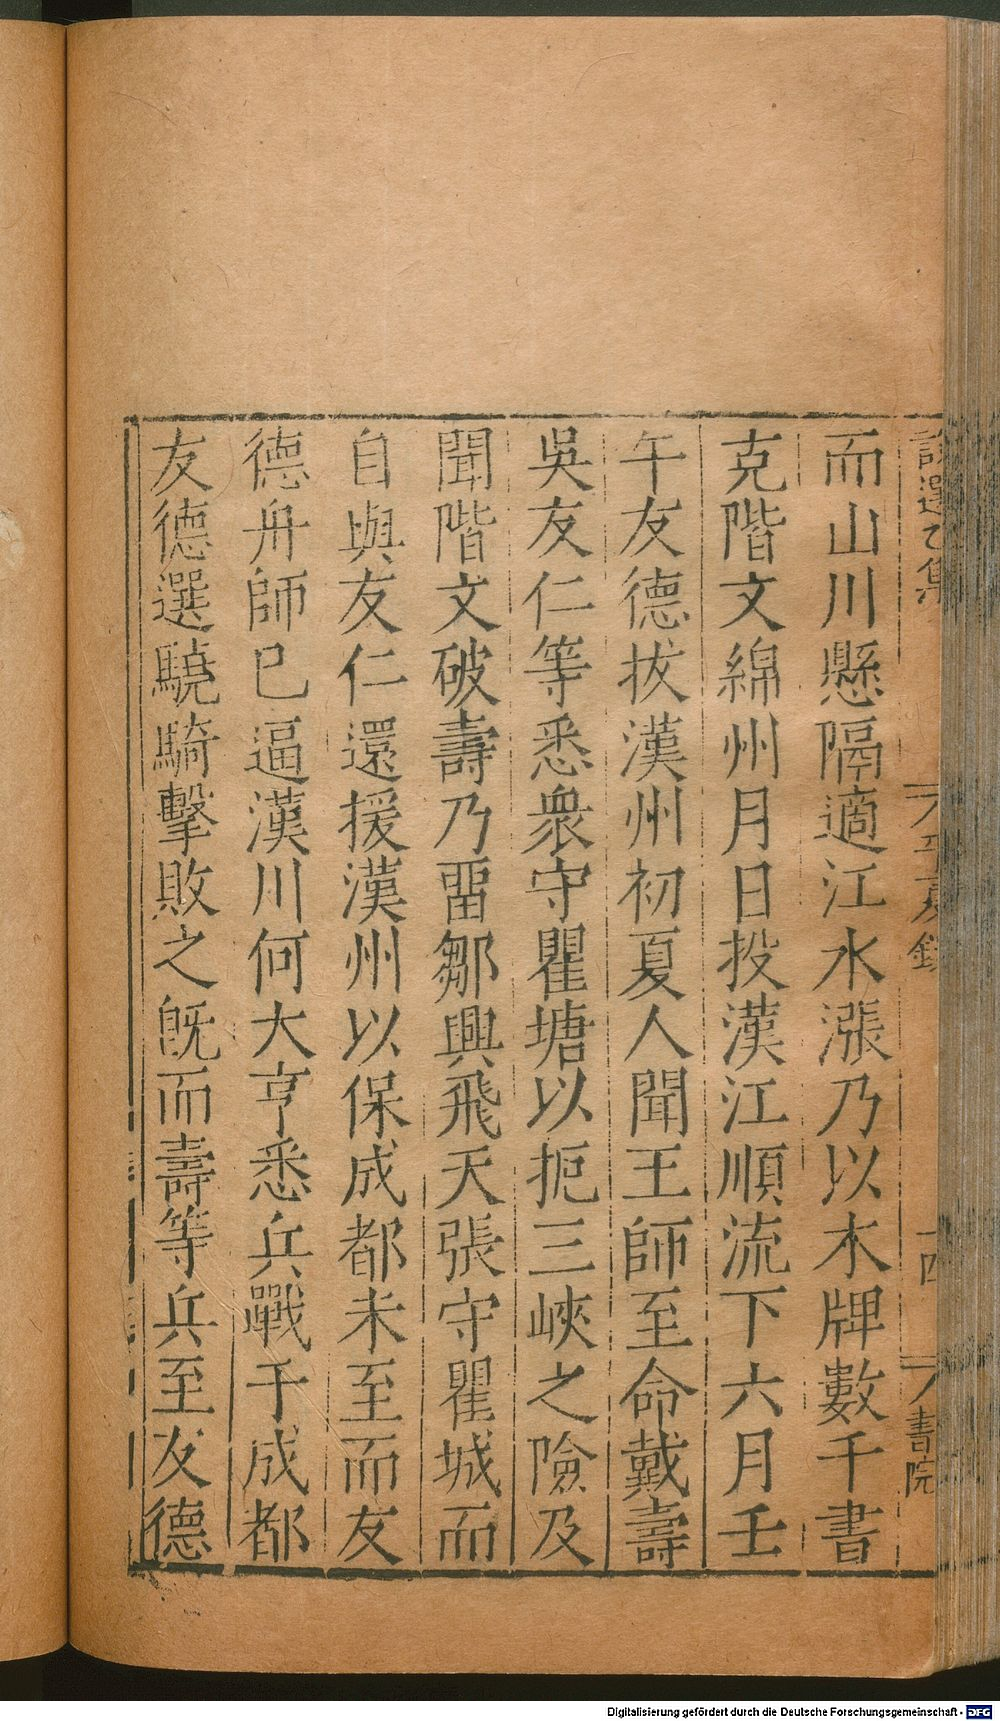 說選乙集
平夏錄
十四
書院
而山川懸隔適江水漲乃以木牌數千書
克階文綿州月日投漢江順流下六月壬
午友德拔漢州初夏人聞王師至命戴壽
吳友仁等悉衆守瞿塘以扼三峽之險及
聞階文破壽乃畱鄒興飛天張守瞿城而
自與友仁還援漢州以保成都未至而友
德舟師已逼漢川何大亨悉兵戰于成都
友德選驍騎擊敗之旣而壽等兵至友德
Digitalisierung gefördert durch die Deutsche Forschungsgemeinschaft - DFG